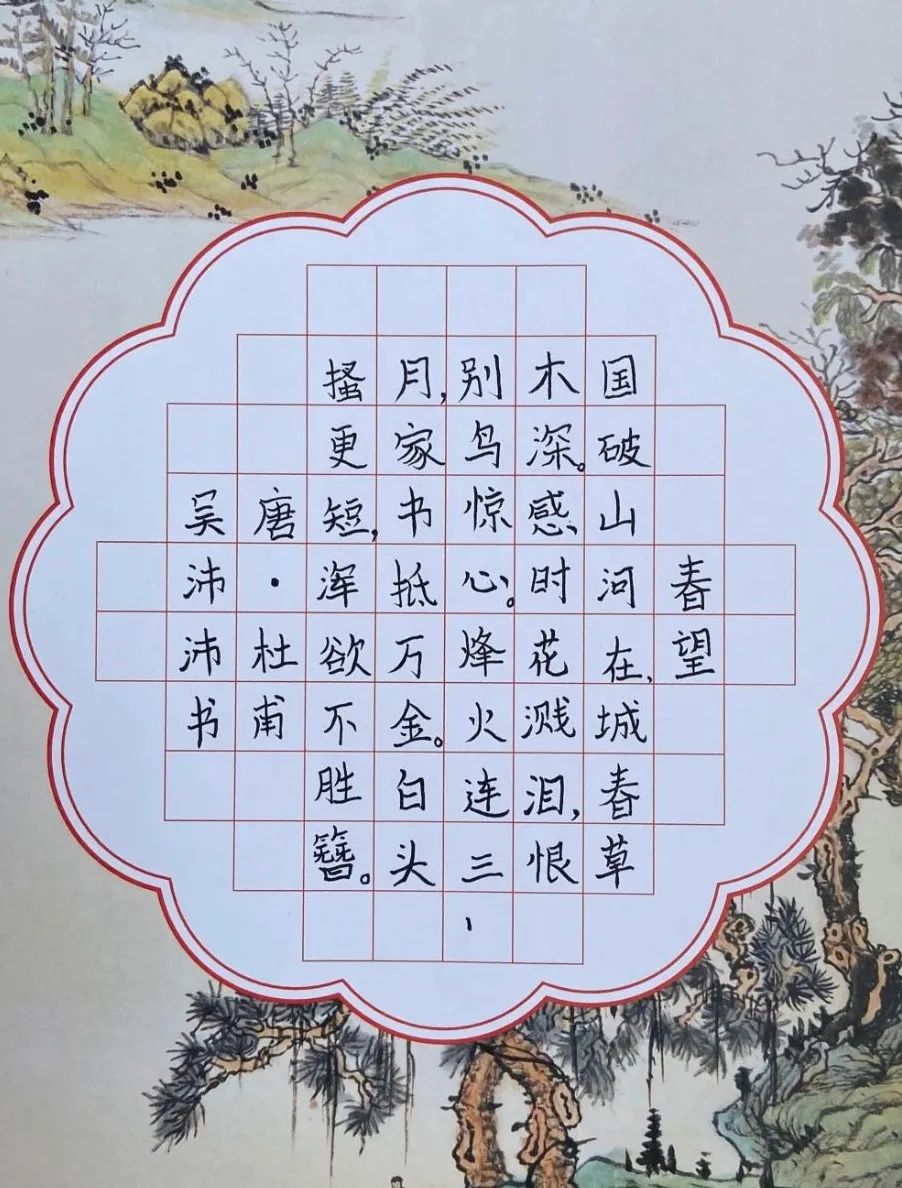 春望
国破山河在,城春草
木深。感时花溅泪,恨
别鸟惊心。烽火连三
月,家书抵万金。白头
搔更短,浑欲不胜簪。
唐·杜甫
吴沛沛书